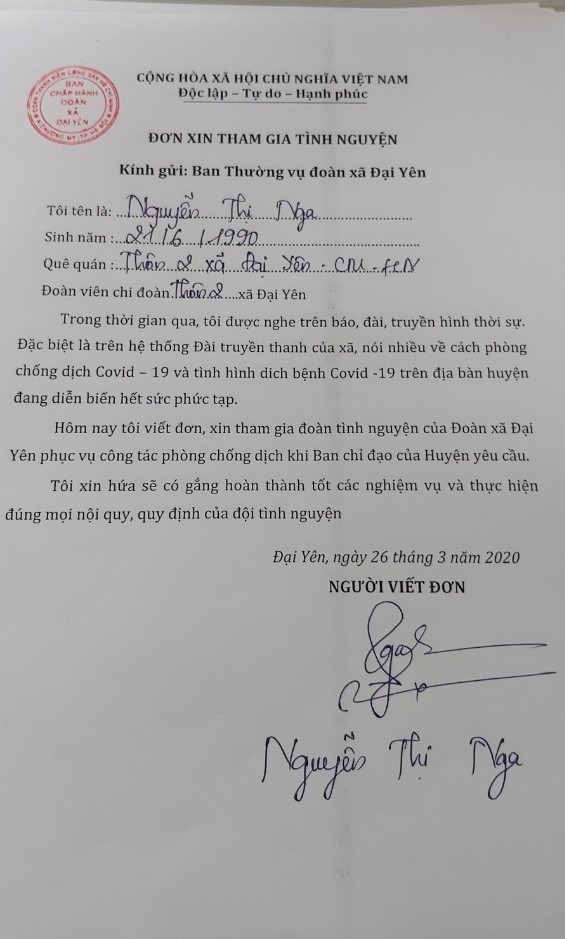 BAN
CHẤP HÀNH
ĐOÀN
XÃ
ĐẠI YÊN
CỘNG HÒA XÃ HỘI CHỦ NGHĨA VIỆT NAM
Độc lập – Tự do – Hạnh phúc
ĐƠN XIN THAM GIA TÌNH NGUYỆN
Kính gửi: Ban Thường vụ đoàn xã Đại Yên
Tôi tên là: Nguyễn Thị Nga
Sinh năm : 21/6/1990
Quê quán : Thôn 2 xã Đại Yên - CM - HN
Đoàn viên chi đoàn Thôn 2 xã Đại Yên
Trong thời gian qua, tôi được nghe trên báo, đài, truyền hình thời sự.
Đặc biệt là trên hệ thống Đài truyền thanh của xã, nói nhiều về cách phòng
chống dịch Covid – 19 và tình hình dich bệnh Covid -19 trên địa bàn huyện
đang diễn biến hết sức phức tạp.
Hôm nay tôi viết đơn, xin tham gia đoàn tình nguyện của Đoàn xã Đại
Yên phục vụ công tác phòng chống dịch khi Ban chỉ đạo của Huyện yêu cầu.
Tôi xin hứa sẽ có gắng hoàn thành tốt các nghiệm vụ và thực hiện
đúng mọi nội quy, quy định của đội tình nguyện
Đại Yên, ngày 26 tháng 3 năm 2020
NGƯỜI VIẾT ĐƠN
Nguyễn Thị Nga